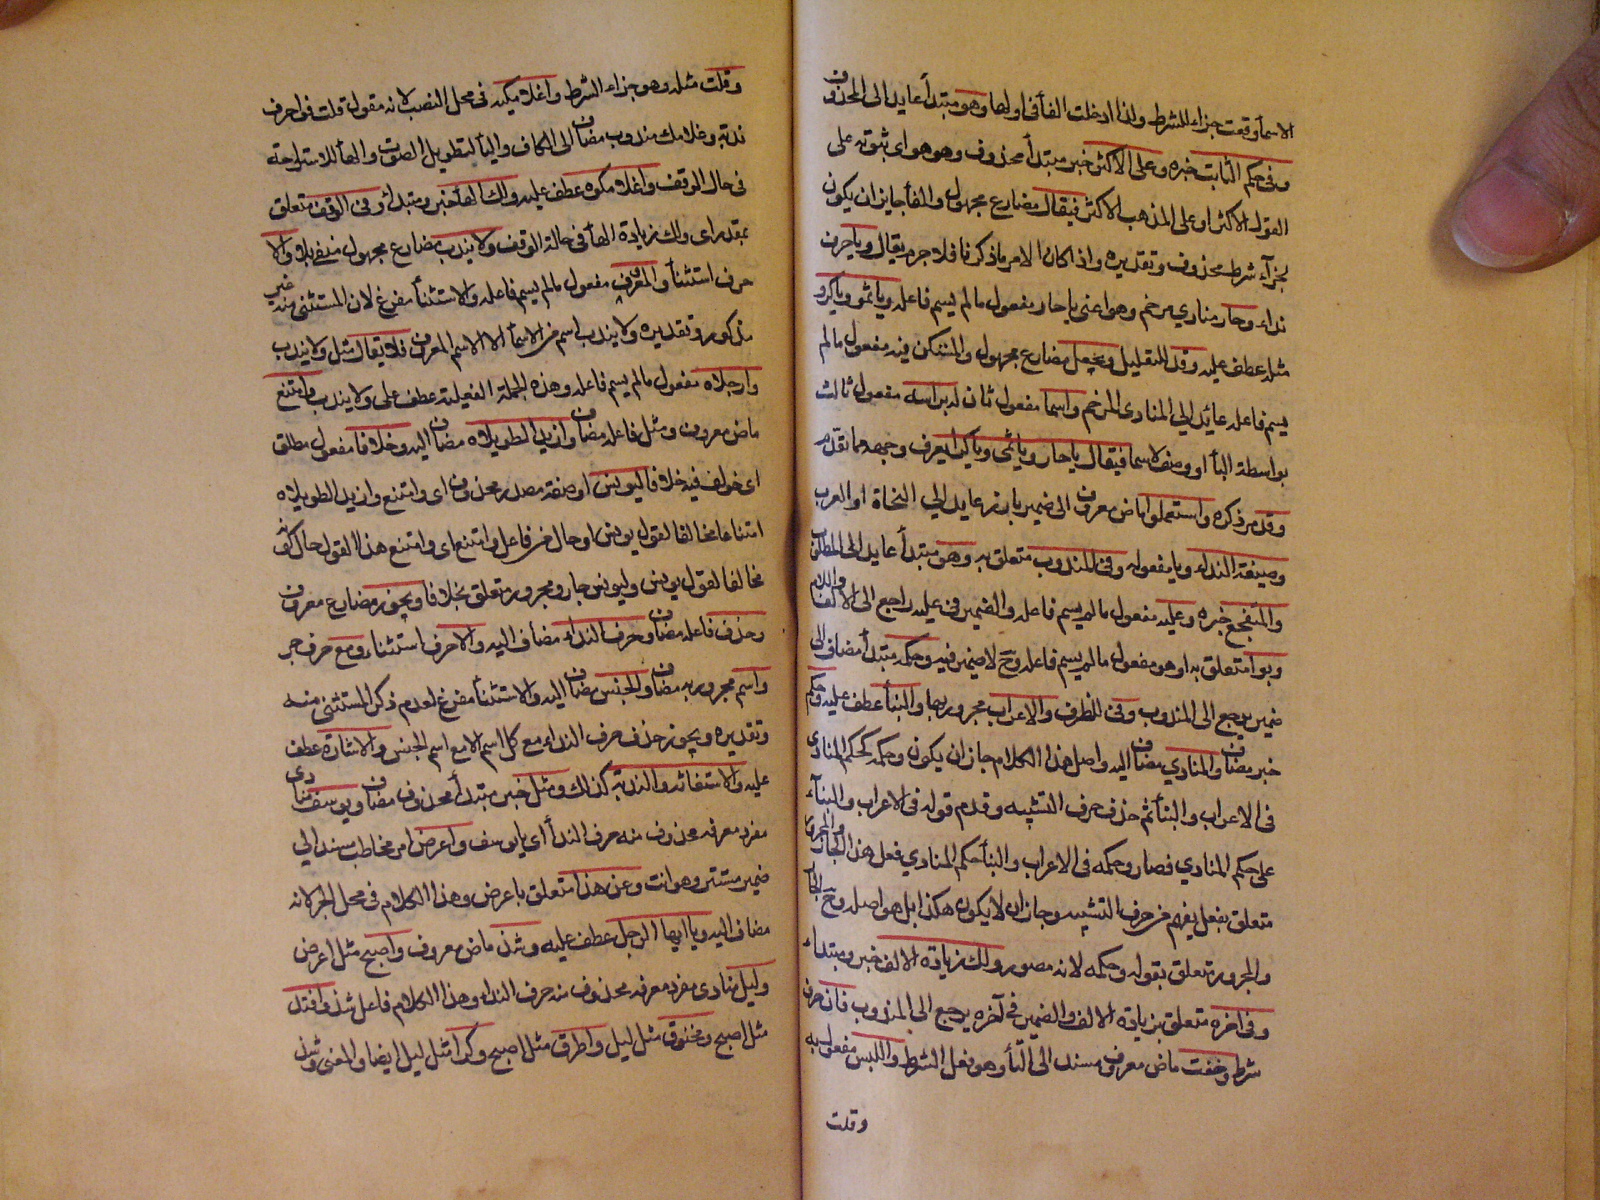 الاسماء وقعت جزاء للشرط ولذا ادخلت الفاء في اولها وهو مبتدأ عايد الى المحذوف
وفي حكم الثابت خبره وعلى الاكثر خبر مبتدأ محذوف وهو هو اى ثبوته على
القول الاكثر او على المذهب الاكثر فيقال مضارع مجهول والفاء جايز ان يكون
لجزاء شرط محذوف وتقديره واذا كان الامر ما ذكرنا فلا جرم يقال ويا حرف
نداء وحار منادي مرخم وهو اعنى يا حار مفعول ما لم يسم فاعله ويا ثمو ويا كرو
مثله عطف عليه وقد للتقليل ويجعل مضارع مجهول والمستكن فيه مفعول ما لم
يسم فاعله عائد الي المنادى المرخم واسما مفعول ثان برأسه مفعول ثالث
بواسطة الباء او وصف لاسما فيقال يا حار ويا ثمي ويا كرا يعرف وجهه مما تقدم
وقد مر ذكره واستعملوا ماض معروف الى ضمير بارز عايد الي النحاة او العرب
وصيغة النداء ويا مفعوله وفي المندوب متعلق به وهو مبتدأ عايد الى المطلق
والمتفجع خبره وعليه مفعول ما لم يسم فاعله والضمير في عليه راجع الى الالف واللام
وبوا متعلق به او هو مفعول ما لم يسم فاعله وح لا ضمير فيه وحكمه مبتدأ مضاف الى
ضمير يرجع الى المندوب وفي للظرف والاعراب مجرور بها والبناء عطف عليه وحكم
خبر مضاف والمنادي مضاف اليه واصل هذا الكلام جاز ان يكون وحكمه كحكم المنادى
في الاعراب والبناء ثم حذف حرف التشبيه وقدم قوله في الاعراب والبناء
على حكم المنادي فصار وحكمه في الاعراب والبناء حكم المنادي فعل هذا الجار والمجرور
متعلق بفعل يفهم من حرف التشبيه وجاز ان لا يكون هكذا بل هو اصل وح الجار
والمجرور متعلق بقوله وحكمه لانه مصدر ولك زيادة الالف خبر ومبتداء
وفي اخره متعلق بزيادة الالف والضمير في آخره يرجع الى المندوب فان حرف
شرط وخفت ماض معروف مسند الى التاء وهو فعل الشرط واللبس مفعول به
وقلت
وقلت مثله وهو جزاء الشرط واغلامكيه في محل النصب لانه مقول قلت فوا حرف
ندبة وغلامك مندوب مضاف الى الكاف والياء لتطويل الصوت والهاء للاستراحة
في حال الوقف واغلامكموه عطف عليه ولك الهاء خبر ومبتدأ وفي الوقف متعلق
بمقدر اى ولك زيادة الهاء في حالة الوقف ولا يندب مضارع مجهول منفى بلا والا
حرف استثناء والمعروف مفعول ما لم يسم فاعله والاستثناء مفرغ لان المستثنى منه غير
مذكور وتقديره ولا يندب اسم من الاسماء الا الاسم المعروف فلا يقال مثل ولا يندب
وارجلاه مفعول ما لم يسم فاعله وهذه الجملة الفعلية عطف على ولا يندب وامتنع
ماض معروف ومثل فاعله مضاف وازيد الطويلاه مضاف اليه وخلافا مفعول مطلق
اى خولف فيه خلافا ليونس او صفة مصدر محذوف اى وامتنع وازيد الطويلاه
امتناعا مخالفا لقول يونس او حال من فاعل وامتنع اى وامتنع هذا القول حال كونه
مخالفا لقول يونس وليونس جار ومجرور متعلق بخلافا ويجوز مضارع معروف
وحذف فاعله مضاف وحرف النداء مضاف اليه والا حرف استثناء ومع حرف جر
واسم مجرور به مضاف والجنس مضاف اليه والاستثناء مفرغ لعدم ذكر المستثنى منه
وتقديره ويجوز حذف حرف النداء مع كل اسم الا مع اسم الجنس والاشارة عطف
عليه والاستغاثة والندبة كذلك ومثل خبر مبتدأ محذوف مضاف ويوسف منادى
مفرد معرفه محذوف منه حرف النداء أى يا يوسف واعرض امر مخاطب مسند الي
ضمير مستتر وهو انت وعن هذا متعلق باعرض وهذا الكلام في محل الجر لانه
مضاف اليه ويا ايها الرجل عطف عليه وشذ ماض معروف واصبح مثل اعرض
وليل منادى مفرد معرفه محذوف منه حرف النداء وهذا الكلام فاعل شذ وافتد
مثل اصبح ومخنوق مثل ليل واطرق مثل اصبح وكرا مثل ليل ايضا والمعنى وشذ